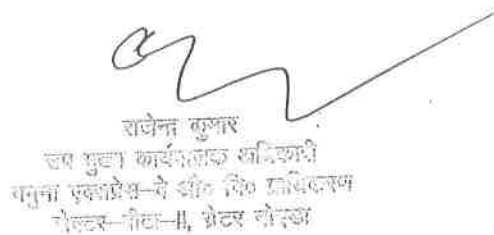 राजेन्द्र कुमार
उप मुख्य कार्यपालक अधिकारी
यमुना एक्सप्रेस-वे औ० वि० प्राधिकरण
सेक्टर-बीटा-II, ग्रेटर नोएडा